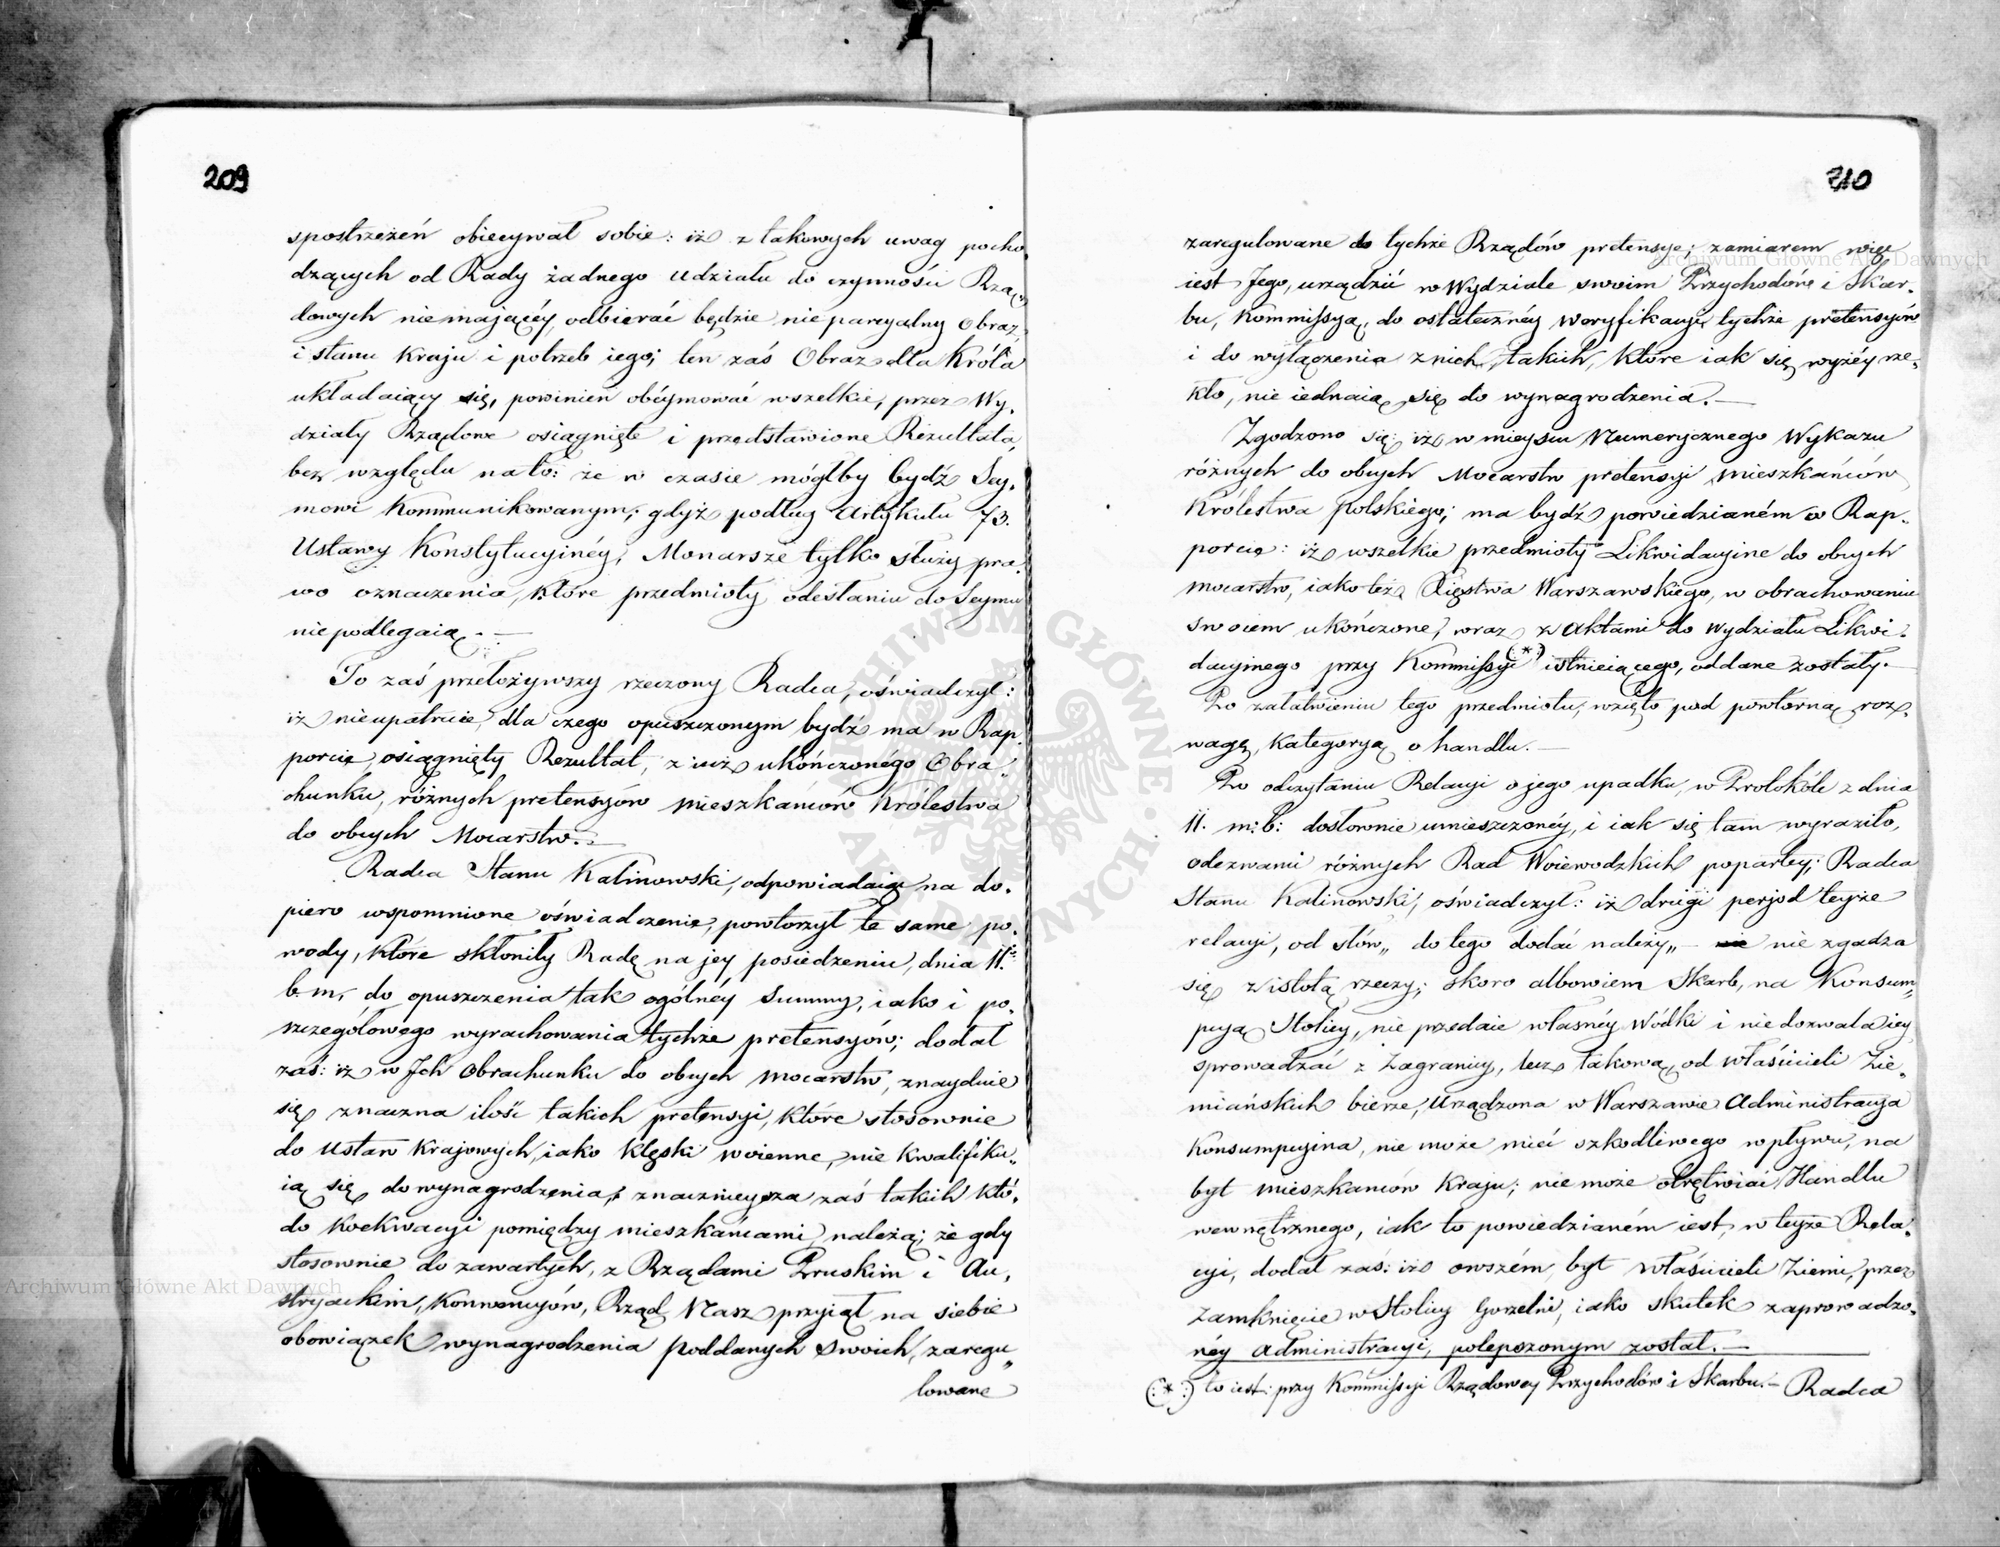 209
spostrzeżeń obiecywał sobie: iż z takowych uwag pocho,
dzących od Rady żadnego udziału do czynności Rzą,
dowych niemaiącéy, odbierać będzie nieparcyalny Obraz
i stanu Kraju i potrzeb iego; ten zaś Obraz dla Króla
układaiący się, powinien obéymować wszelkie, przez Wy,
działy Rządowe osiągnięte i przedstawione Rezultata,
bez względu na to: że w czasie mógłby bydź Sey,
mowi Kommunikowanym; gdyż podług Artykułu 73.
Ustawy Konstytucyinéy, Monarsze tylko służy pra,
wo oznaczenia, które przedmioty odesłaniu do Seymu
niepodlegaią. —
To zaś przełożywszy rzeczony Radca, oświadczył:
iż nieupatruie, dla czego opuszczonym bydź ma w Rap,
porcie osiągnięty Rezultat, z iuż ukończonégo Obra,,
chunku, różnych pretensyów mieszkańców Królestwa
do obcych Mocarstw. —
Radca Stanu Kalinowski, odpowiadaiąc na do,
piero wspomnione oświadczenie, powtorzył te same po,
wody, które skłoniły Radę na jey posiedzeniu, dnia 11.
b. m. do opuszczenia tak ogólnéy Summy, iako i po,
szczegółowego wyrachowania tychże pretensyów; dodał
zaś: iż w Jch Obrachunku do obcych mocarstw, znayduie
się znaczna ilość takich pretensyi, które stosownie
do Ustaw Krajowych, iako Klęski woienne, nie kwalifiku,,
ią się do wynagrodzenia, znacznieysza zaś takich któ,
do Koekwacyi pomiędzy mieszkańcami należą; że gdy
stosownie do zawartych, z Rządami Pruskim i Au,
stryackim, Konwencyów, Rząd Nasz przyiął na siebie
obowiązek wynagrodzenia poddanych swoich, zaregu,,
lowane
210
zaregulowane do tychże Rządów pretensye; zamiarem więc
iest Jego, urządzić w Wydziale swoim Przychodów i Skar,
bu, Kommissyą, do ostatecznéy weryfikacyi tychże pretensyów
i do wyłączenia z nich, takich, które iak się wyżéy rze,
kło, nie iednaią się do wynagrodzenia. —
Zgodzono się: iż w mieyscu Numerycznego Wykazu
różnych do obcych Mocarstw pretensyi mieszkańców
Królestwa polskiego; ma bydź powiedzianém w Rap,
porcie: iż wszelkie przedmioty Likwidacyine do obcych
mocarstw, iako też Xięstwa Warszawskiego, w obrachowaniu
swoiem ukończone, wraz z aktami do Wydziału Likwi,
dacyinego przy Kommissyi (*) istnieiącego, oddane zostały. —
Po załatwieniu tego przedmiotu, wzięto pod powtórną roz,
wagę, Kategoryą o handlu. —
Po odczytaniu Relacyi o jego upadku, w Protokóle z dnia
11. m: b: dosłownie umieszczonéy, i iak się tam wyraziło,
odezwami różnych Rad Woiewodzkich popartey; Radca
Stanu Kalinowski, oświadczył: iż drugi peryod teyże
relacyi, od słów,, do tego dodać należy,, — nie zgadza
się z istotą rzeczy; skoro albowiem Skarb, na Konsum,,
pcyą Stolicy, nie przedaie własnéy Wódki i nie dozwala iey
sprowadzać z Zagranicy, lecz takową, od właścicieli Zie,
miańskich bierze, Urządzona w Warszawie Administracya
Konsumpcyina, nie może mieć szkodliwego wpływu, na
byt mieszkańców Kraju; nie może otrętwiać Handlu
wewnętrznego, iak to powiedzianém iest, w teyże Rela,
cyi, dodał zaś: iż owszém, byt właścicieli Ziemi, przez
zamknięcie w Stolicy Gorzelni, iako skutek zaprowadzo,
néy Administracyi, polepszonym został. —
(*) to iest: przy Kommissyi Rządowey Przychodów i Skarbu. — Radca